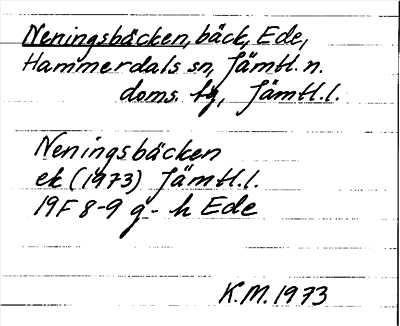 Neningsbäcken, bäck, Ede,
Hammerdals sn, Jämtl. n.
doms. tg, Jämtl. l.
Neningsbäcken
ek (1973) Jämtl. l.
19F 8-9 g - h Ede
K.M. 1973